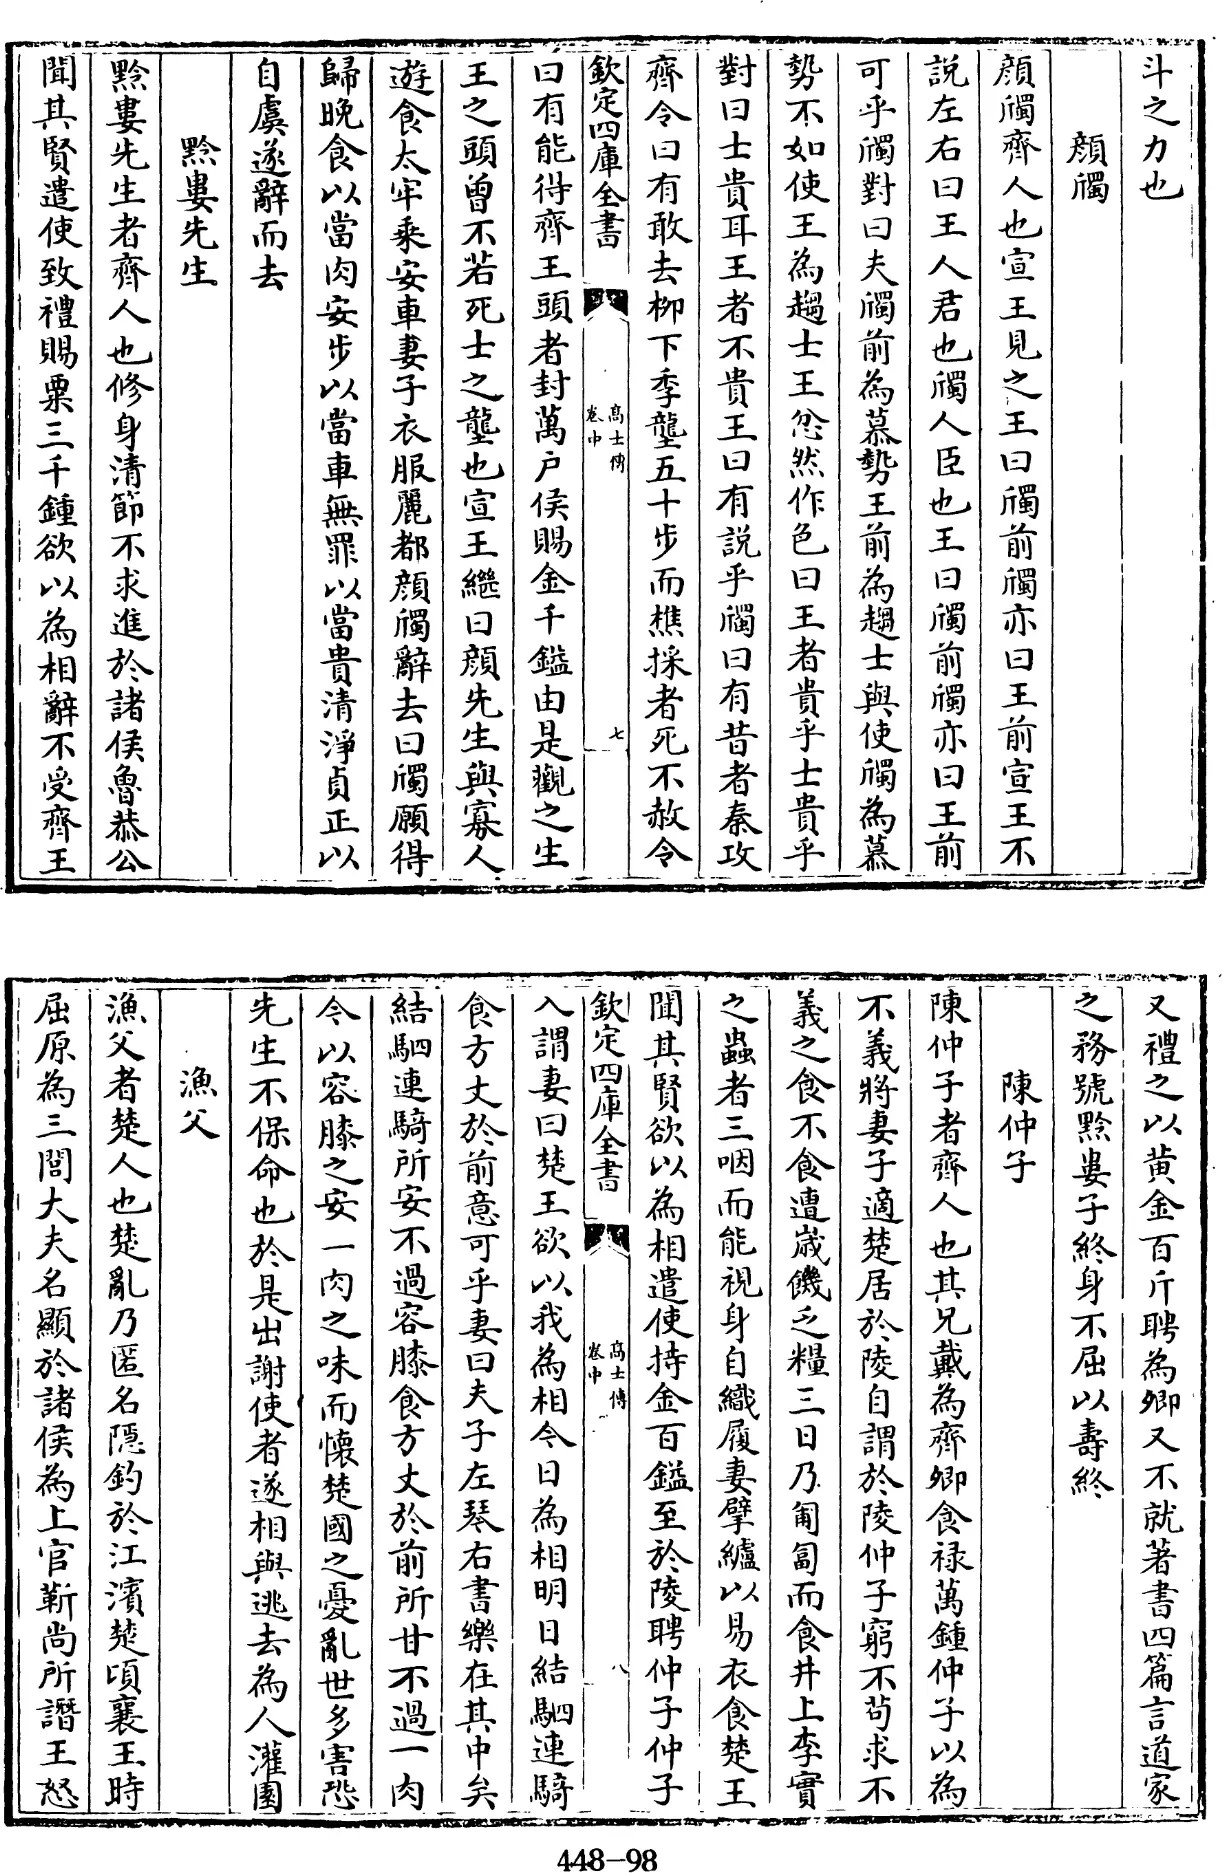 斗之力也
顔斶
顔斶齊人也宣王見之王曰斶前斶亦曰王前宣王不
説左右曰王人君也斶人臣也王曰斶前斶亦曰王前
可乎斶對曰夫斶前為慕勢王前為趨士與使斶為慕
勢不如使王為趨士王忿然作色曰王者貴乎士貴乎
對曰士貴耳王者不貴王曰有説乎斶曰有昔者秦攻
齊令曰有敢去柳下季壟五十步而樵採者死不赦令
欽定四庫全書
高士傳
卷中
七
曰有能得齊王頭者封萬户侯賜金千鎰由是觀之生
王之頭曾不若死士之壟也宣王繼曰顔先生與寡人
遊食太牢乘安車妻子衣服麗都顔斶辭去曰斶願得
歸晚食以當肉安步以當車無罪以當貴清淨貞正以
自虞遂辭而去
黔婁先生
黔婁先生者齊人也修身清節不求進於諸侯魯恭公
聞其賢遣使致禮賜粟三千鍾欲以為相辭不受齊王
又禮之以黄金百斤聘為卿又不就著書四篇言道家
之務號黔婁子終身不屈以壽終
陳仲子
陳仲子者齊人也其兄戴為齊卿食禄萬鍾仲子以為
不義將妻子適楚居於陵自謂於陵仲子窮不苟求不
義之食不食遭嵗饑乏糧三日乃匍匐而食井上李實
之蟲者三咽而能視身自織履妻擘纑以易衣食楚王
聞其賢欲以為相遣使持金百鎰至於陵聘仲子仲子
欽定四庫全書
高士傳
卷中
八
入謂妻曰楚王欲以我為相今日為相明日結駟連騎
食方丈於前意可乎妻曰夫子左琴右書樂在其中矣
結駟連騎所安不過容膝食方丈於前所甘不過一肉
今以容膝之安一肉之味而懷楚國之憂亂世多害恐
先生不保命也於是出謝使者遂相與逃去為人灌園
漁父
漁父者楚人也楚亂乃匿名隱釣於江濱楚頃襄王時
屈原為三閭大夫名顯於諸侯為上官靳尚所譖王怒
448-98